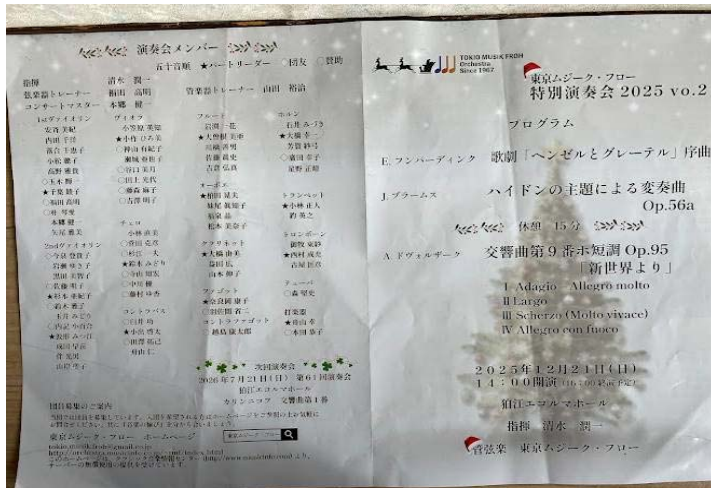 演奏会メンバー
五十音順 ★パートリーダー ○団友 ○賛助
指揮 清水 潤一
弦楽器トレーナー 楠田 高明 管楽器トレーナー 山田 裕治
コンサートマスター 本郷 健一
1stヴァイオリン
安斉 美紀
内田 千洋
小松 優子
高野 雅良
本郷 健一
矢尾 雅美
2ndヴァイオリン
黒田 美智子
○佐藤 明子
★杉本 亜紀子
鈴木 雅子
玉井 みどり
成田 早苗
ヴィオラ
小笠原 英知
★小作 ひろ美
○谷口 美月
○田上 光代
○藤森 麻子
○吉澤 明子
チェロ
小林 直美
○菅田 克彦
○杉江 一夫
★鈴木 みどり
○中川 優
○藤村 ゆき
コントラバス
○臼井 功
★小島 啓太
フルート
★大曽根 美亜
川橋 善男
佐藤 眞史
吉倉 弘真
オーボエ
★楠田 晃美
松本 美奈子
クラリネット
★大橋 由美
益田 広
山本 伸子
ファゴット
★奈良岡 康子
○羽佐間 省二
コントラファゴット
○越島 康太郎
ホルン
石井 みづき
★大橋 幸一
芳賀 紗弓
○廣田 幸子
星野 正晴
トランペット
★小林 正人
釣 英之
トロンボーン
御牧 東紗
★西村 成史
古屋 匡彦
テューバ
○森 堅史
打楽器
★舟山 幸
○本田 恭子
次回演奏会
2026年7月21日(日) 第61回演奏会
狛江エコルマホール
カリンニコフ 交響曲第1番
団員募集のご案内
東京ムジーク・フロー ホームページ
東京ムジーク・フロー
TOKIO MUSIK FROH
Orchestra
Since 1962
東京ムジーク・フロー
特別演奏会 2025 vo.2
プログラム
E. フンパーディンク 歌劇「ヘンゼルとグレーテル」序曲
J. ブラームス ハイドンの主題による変奏曲
Op.56a
休憩 15分
A. ドヴォルザーク 交響曲第9番ホ短調 Op.95
「新世界より」
Ⅰ Adagio Allegro molto
Ⅱ Largo
Ⅲ Scherzo (Molto vivace)
Ⅳ Allegro con fuoco
2025年12月21日(日)
14:00開演 (16:00終演予定)
狛江エコルマホール
指揮 清水 潤一
管弦楽 東京ムジーク・フロー